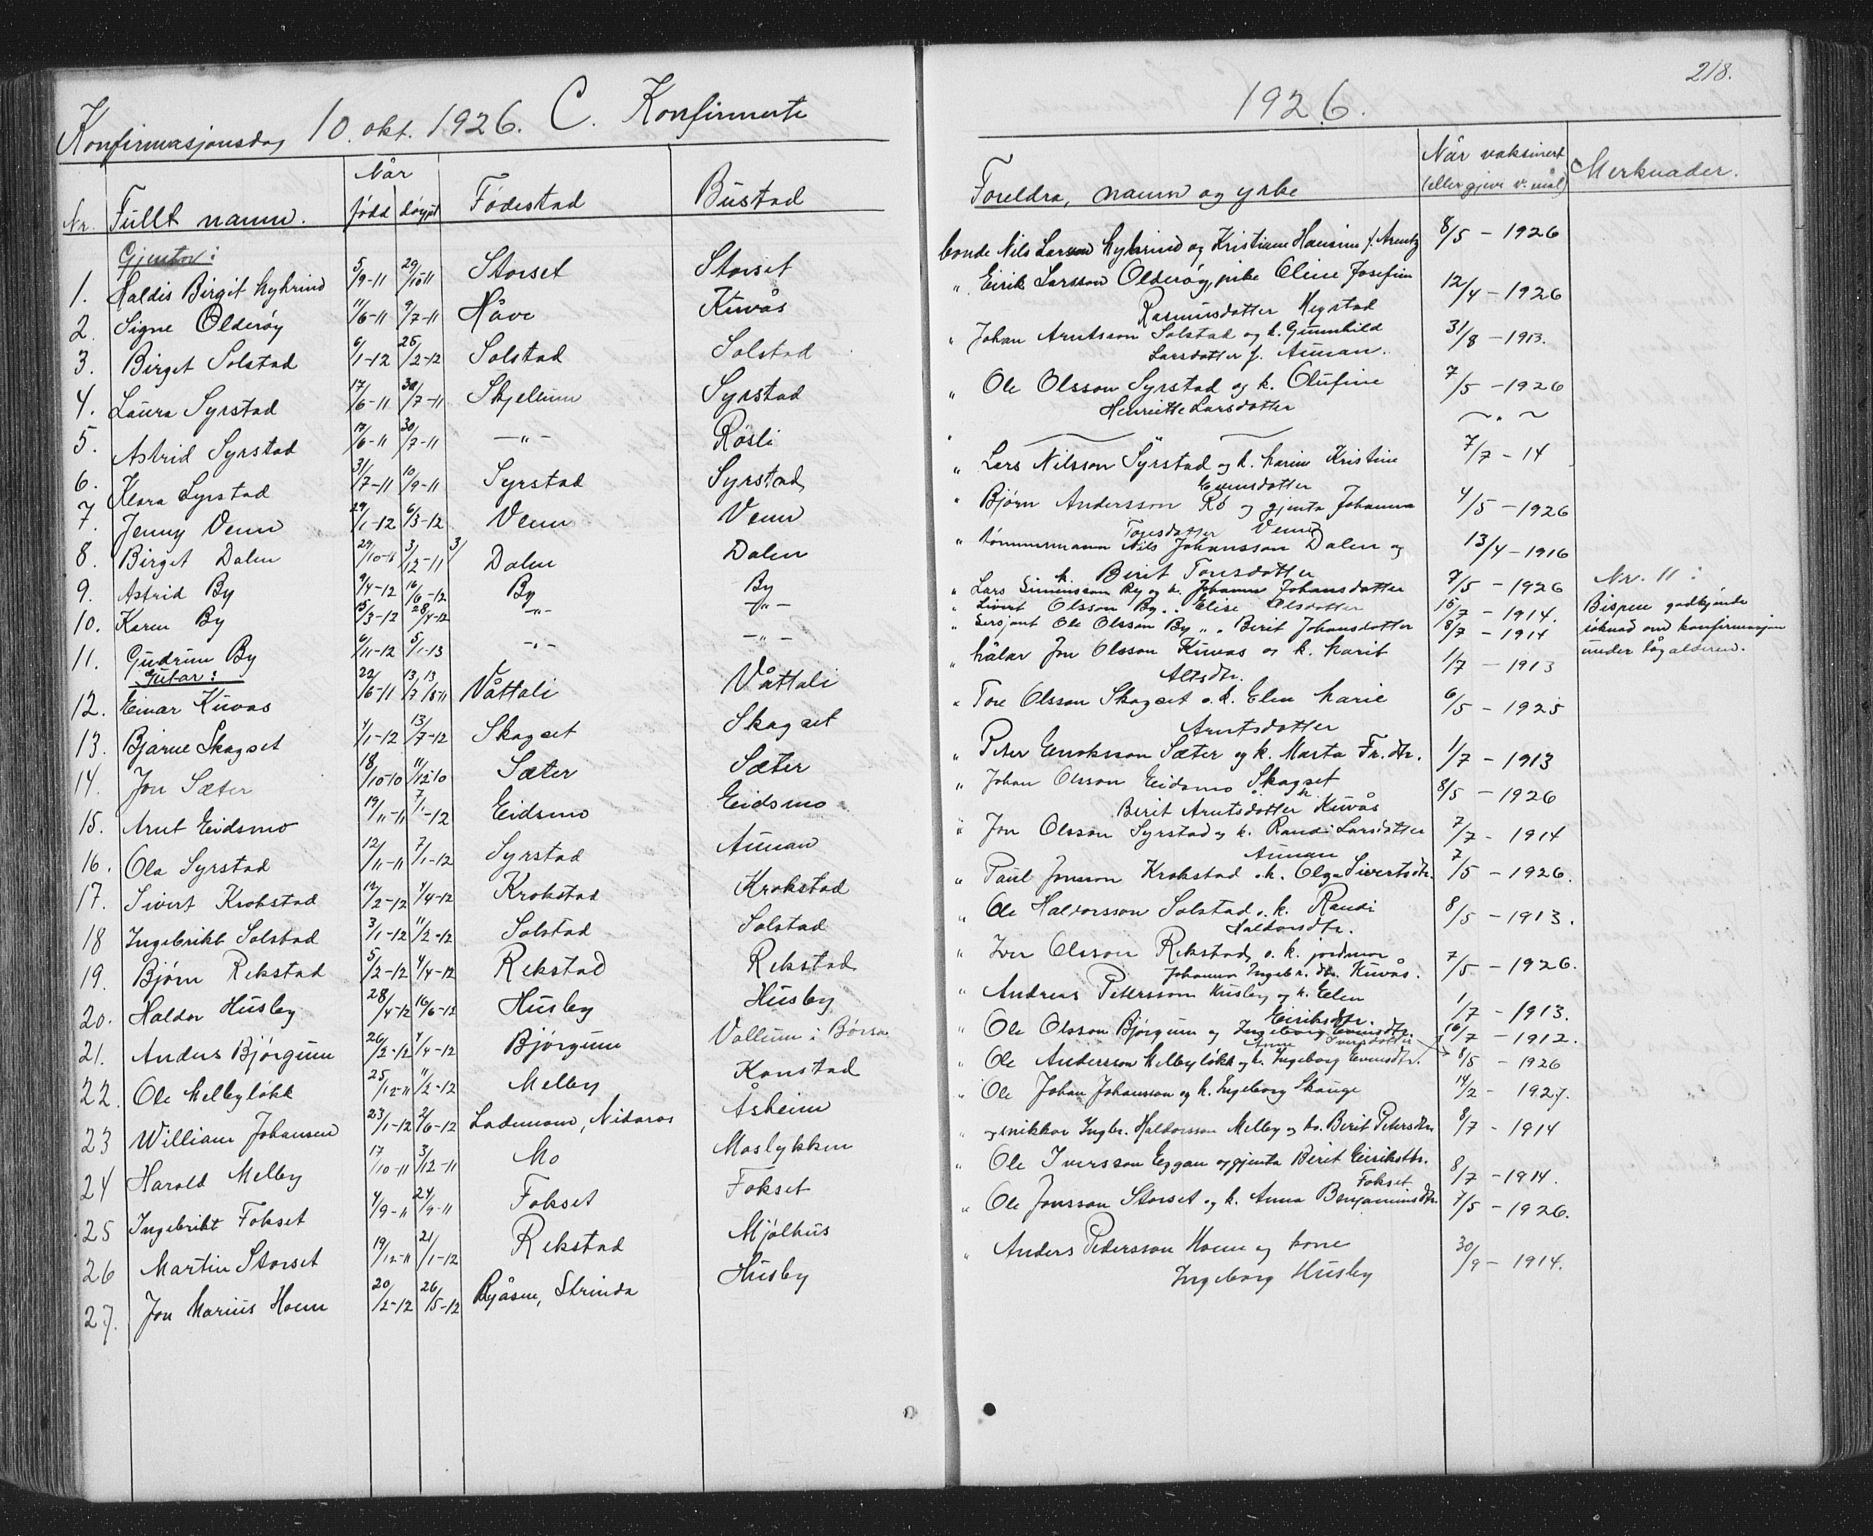 Konfirmasjonsdag 10. okt. 1926. C. Konfirmerte
Når
Nr. Fullt namn. født døypt Fødestad Bustad
Gjentor:
1. Haldis Birgit Lykrind 5/9-11 29/10 11 Storset Storset
2. Signe Olderøy 11/6-11 9/7-11 Håve Kuvås
3. Birget Solstad 6/1-12 25/2-12 Solstad Solstad
4. Laura Syrstad 17/6-11 30/7-11 Skjellum Syrstad
5. Astrid Syrstad 17/6-11 30/7-11 -"- Røsli
6. Klara Syrstad 31/7-11 10/9-11 Syrstad Syrstad
7. Jenny Venn 29/1-12 6/3-12 Venn Venn
8. Birget Dalen 29/10-11 3/12-11 Dalen Dalen
9. Astrid By 9/4-12 16/6-12 By By
10. Karen By 15/3-12 28/4-12 -"- -"-
11. Gudrun By 6/11-12 5/1-13 -"- -"-
Gutar:
12. Einar Kuvås 22/6-11 13/7 13/8-11 Våttali Våttali
13. Bjarne Skagset 4/1-12 13/7-12 Skagset Skagset
14. Jon Sæter 18/10-10 11/12-10 Sæter Sæter
15. Arnt Eidsmo 19/11-11 7/1-12 Eidsmo Eidsmo
16. Ola Syrstad 12/11-11 7/1-12 Syrstad Aunan
17. Sivert Krokstad 12/2-12 4/4-12 Krokstad Krokstad
18 Ingebrikt Solstad 3/1-12 11/2-12 Solstad Solstad
19. Bjørn Rekstad 5/2-12 4/4-12 Rekstad Rekstad
20. Haldor Husby 28/4-12 16/6-12 Husby Husby
21. Anders Bjørgum 26/2-12 4/4-12 Bjørgum Vollum i Børsa
22. Ole Melbyløkk 25/12-11 11/2-12 Melby Konstad
23 William Johansen 23/1-12 2/6-12 Lademoen, Nidaros Åsheim
24 Harald Melby 17/10-11 3/12-11 Mo Moslykken
25 Ingebrikt Fokset 4/9-11 24/9-11 Fokset Fokset
26 Martin Storset 19/12-11 21/1-12 Rekstad Mjølhus
27. Jon Marius Hoem 20/2-12 26/5-12 Ryåsen, Strinda Husby
218.
1926.
Foreldra, namn og yrke Når vaksinert (eller gjeve v. mål) Merknader.
bonde Nils Larsen Lykrind og Kristiane Hansine f. Arentz 8/5 - 1926
" Eirik Larsson Olderøy, pike Oline Josefine
Rasmusdotter Hegstad 12/4 - 1926
" Johan Arntsson Solstad og k. Gunnhild
Larsdotter f. Aunan. 31/8 - 1913.
" Ole Olsson Syrstad og k. Olufine
Henriette Larsdotter 7/5 - 1926
" ~ ~ ~ " ~
" Lars Nilsson Syrstad og k. Marie Kristine
Evensdotter 7/7 - 14
" Bjørn Andersson Rø og gjenta Johanna
Toresdotter Venn 4/5 - 1926
" tømmermann Nils Johansson Dalen og
k. Berit Toresdotter 13/4 - 1916
" Lars Simensson By og k. Johanna Johansdotter 7/5 - 1926
" Sivert Olsson By " " Elise Olsdotter 16/7 - 1914.
" Sersjant Ole Olsson By " " Berit Johansdotter 8/7 - 1914
Nr. 11:
Bispen godkjende
søknad om konfirmasjon
under lågalderen.
" målar Jon Olsson Kuvås og k. Marit
Altsdtr. 1/7 - 1913
" Tore Olsson Skagset o. k. Elen Marie
Arntsdotter 6/5 - 1925
" Peter Enoksson Sæter og k. Marta Fr. dtr.
Skagset 1/7 - 1913
" Johan Olsson Eidsmo o. k.
Berit Arntsdotter Kuvås 8/5 - 1926
" Jon Olsson Syrstad og k. Randi Larsdotter
Aunan 7/7 - 1914
" Paul Jonsson Krokstad o. k. Olga Sivertsdtr. 7/5 - 1926.
" Ole Haldorsson Solstad o. k. Randi
Haldorsdtr. 8/5 - 1913.
" Iver Olsson Rekstad, o. k. jordmor
Johanna Ingebr. dtr. Kuvås. 7/5 - 1926.
" Andreas Petersson Husby og k. Elen
Eiriksdtr. 1/7 - 1913.
" Ole Olsson Bjørgum og Ingeborg Evensdtr. 16/7 - 1912.
Anne Iversdotter
" Ole Andersson Melbyløkk og k. Ingeborg Evensdtr. 8/5 - 1926
" Ole Johan Johansson og k. Ingeborg Skauge 14/2 - 1927.
" og snikkar Ingbr. Haldorsson Melby og ko. Berit Petersdtr 8/7 - 1914
" Ole Iversson Eggan og gjenta Berit Eiriksdtr.
Fokset 8/7 - 1914.
" Ole Jonsson Storset og k. Anna Benjaminsdtr. 7/5 - 1926.
" Anders Pedersson Hoem og kone
Ingeborg Husby 30/9 - 1914.